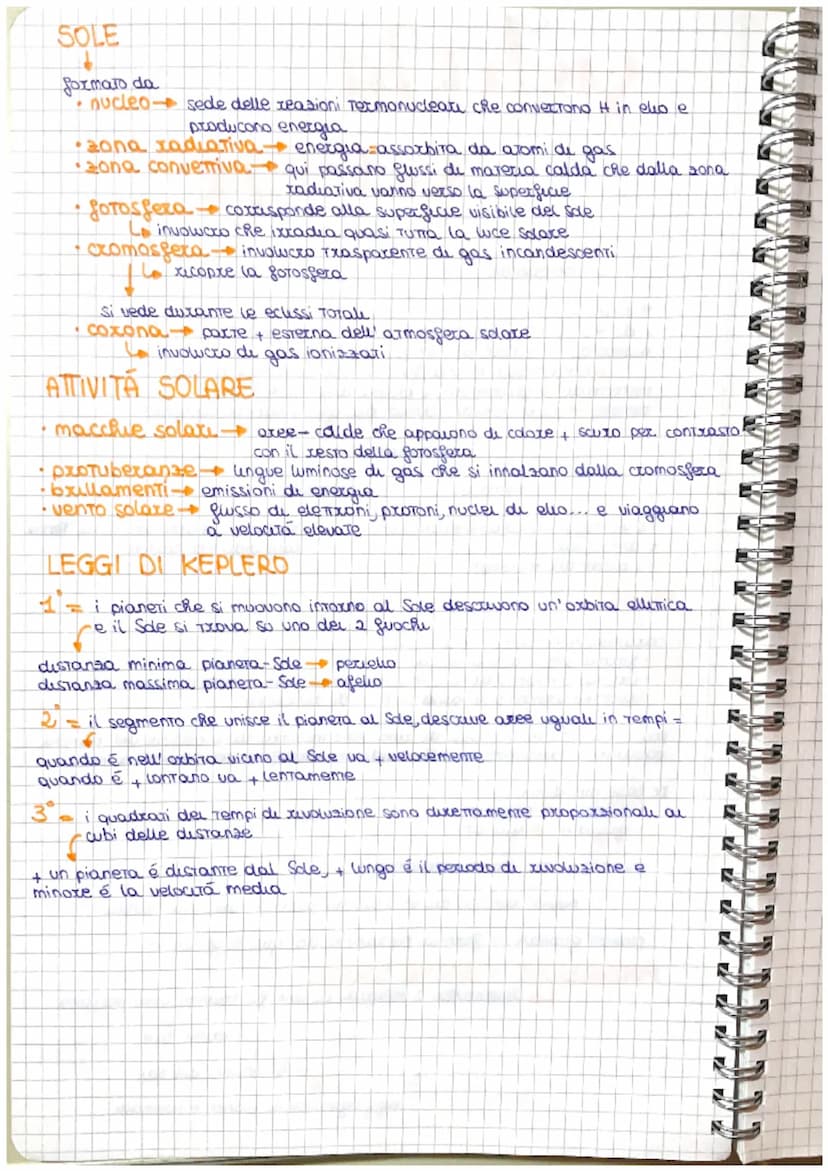 SOLE
formato da
• nucleo → sede delle reazioni termonucleari che convertono H in elio e
producono energia
• zona radiativa → energia = assorbita da atomi di gas
• zona convettiva → qui passano flussi di materia calda che dalla zona
radiativa vanno verso la superficie
• fotosfera → corrisponde alla superficie visibile del Sole
↳ involucro che irradia quasi tutta la luce solare
• cromosfera → involucro trasparente di gas incandescenti
↳ ricopre la fotosfera
si vede durante le eclissi totali
• corona → parte + esterna dell'atmosfera solare
↳ involucro di gas ionizzati
ATTIVITÁ SOLARE
• macchie solari → aree - calde che appaiono di colore + scuro per contrasto
con il resto della fotosfera
• protuberanze → lingue luminose di gas che si innalzano dalla cromosfera
• brillamenti → emissioni di energia
• vento solare → flusso di elettroni, protoni, nuclei di elio... e viaggiano
a velocitá elevate
LEGGI DI KEPLERO
1° = i pianeti che si muovono intorno al Sole descrivono un'orbita ellittica
e il Sole si trova su uno dei 2 fuochi
distanza minima pianeta-Sole → perielio
distanza massima pianeta-Sole → afelio
2° = il segmento che unisce il pianeta al Sole, descrive aree uguali in tempi =
quando é nell'orbita vicino al Sole va + velocemente
quando é + lontano va + lentamente
3° = i quadrati dei tempi di rivoluzione sono direttamente proporzionali ai
cubi delle distanze
+ un pianeta é distante dal Sole, + lungo é il periodo di rivoluzione e
minore é la velocitá media